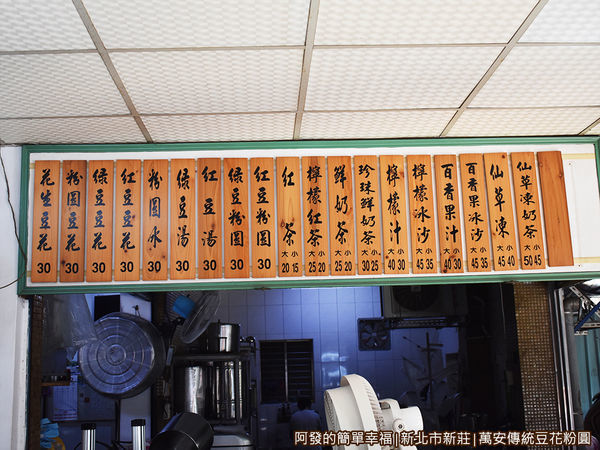 花生豆花 30
粉圓豆花 30
綠豆豆花 30
紅豆豆花 30
粉圓冰 30
綠豆湯 30
紅豆湯 30
綠豆粉圓 30
紅豆粉圓 30
紅茶 大20 小15
檸檬紅茶 大25 小20
鮮奶茶 大25 小20
珍珠鮮奶茶 大30 小25
檸檬汁 大40 小30
檸檬冰沙 大45 小35
百香果汁 大40 小30
百香果冰沙 大45 小35
仙草凍 大45 小40
仙草凍奶茶 大50 小45
阿發的簡單幸福||新北市新莊|萬安傳統豆花粉圓